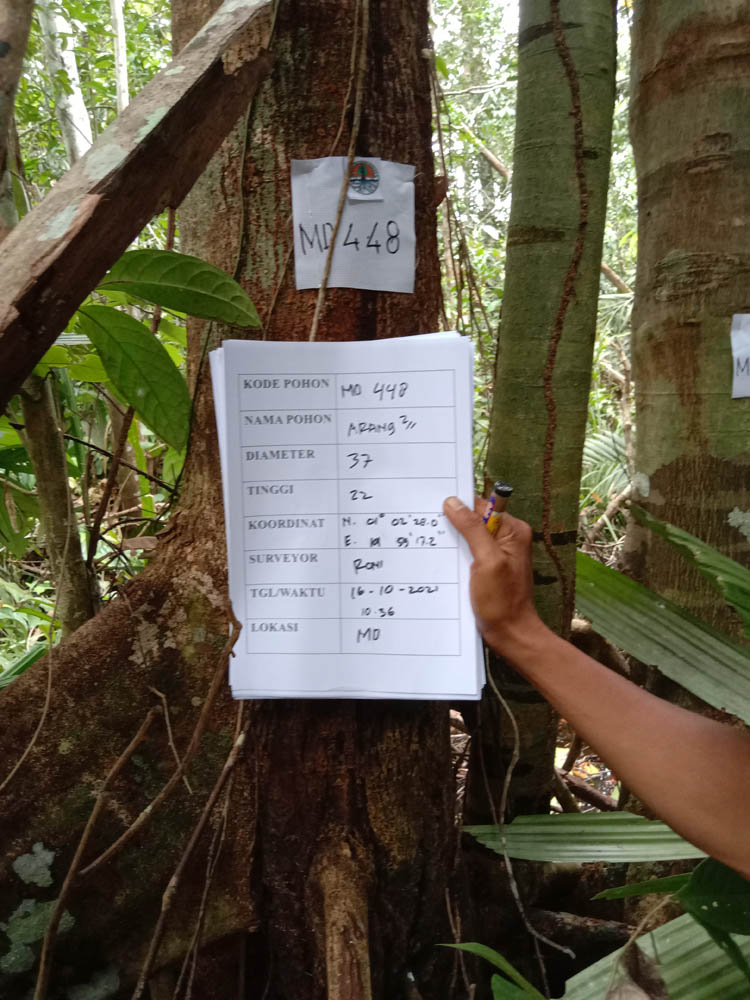 MD 448
KODE POHON MD 448
NAMA POHON ARANG²,,
DIAMETER 37
TINGGI 22
KOORDINAT N. 01° 02' 28.0"
E. 101 59' 17.2"
SURVEYOR RONI
TGL/WAKTU 16-10-2021
10.36
LOKASI MD
M